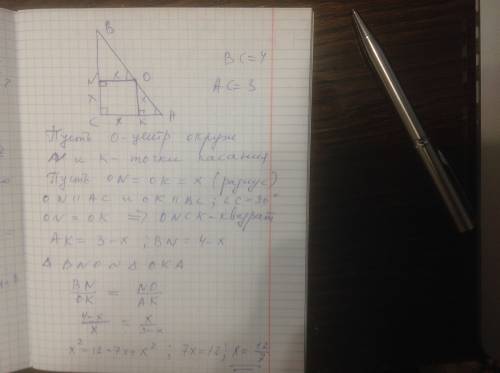 B
N x O
x x
C x K A
BC=4
AC=3
Пусть O-центр окруж
N и K-точки касания
Пусть ON=OK=x (радиус)
ON||AC и OK||BC; ∠C=90°
ON=OK ⇒ ONCK-квадрат
AK=3-x ; BN=4-x
Δ BNO ~ Δ OKA
BN/OK = NO/AK
4-x/x = x/3-x
x²=12-7x+x² ; 7x=12; x=12/7